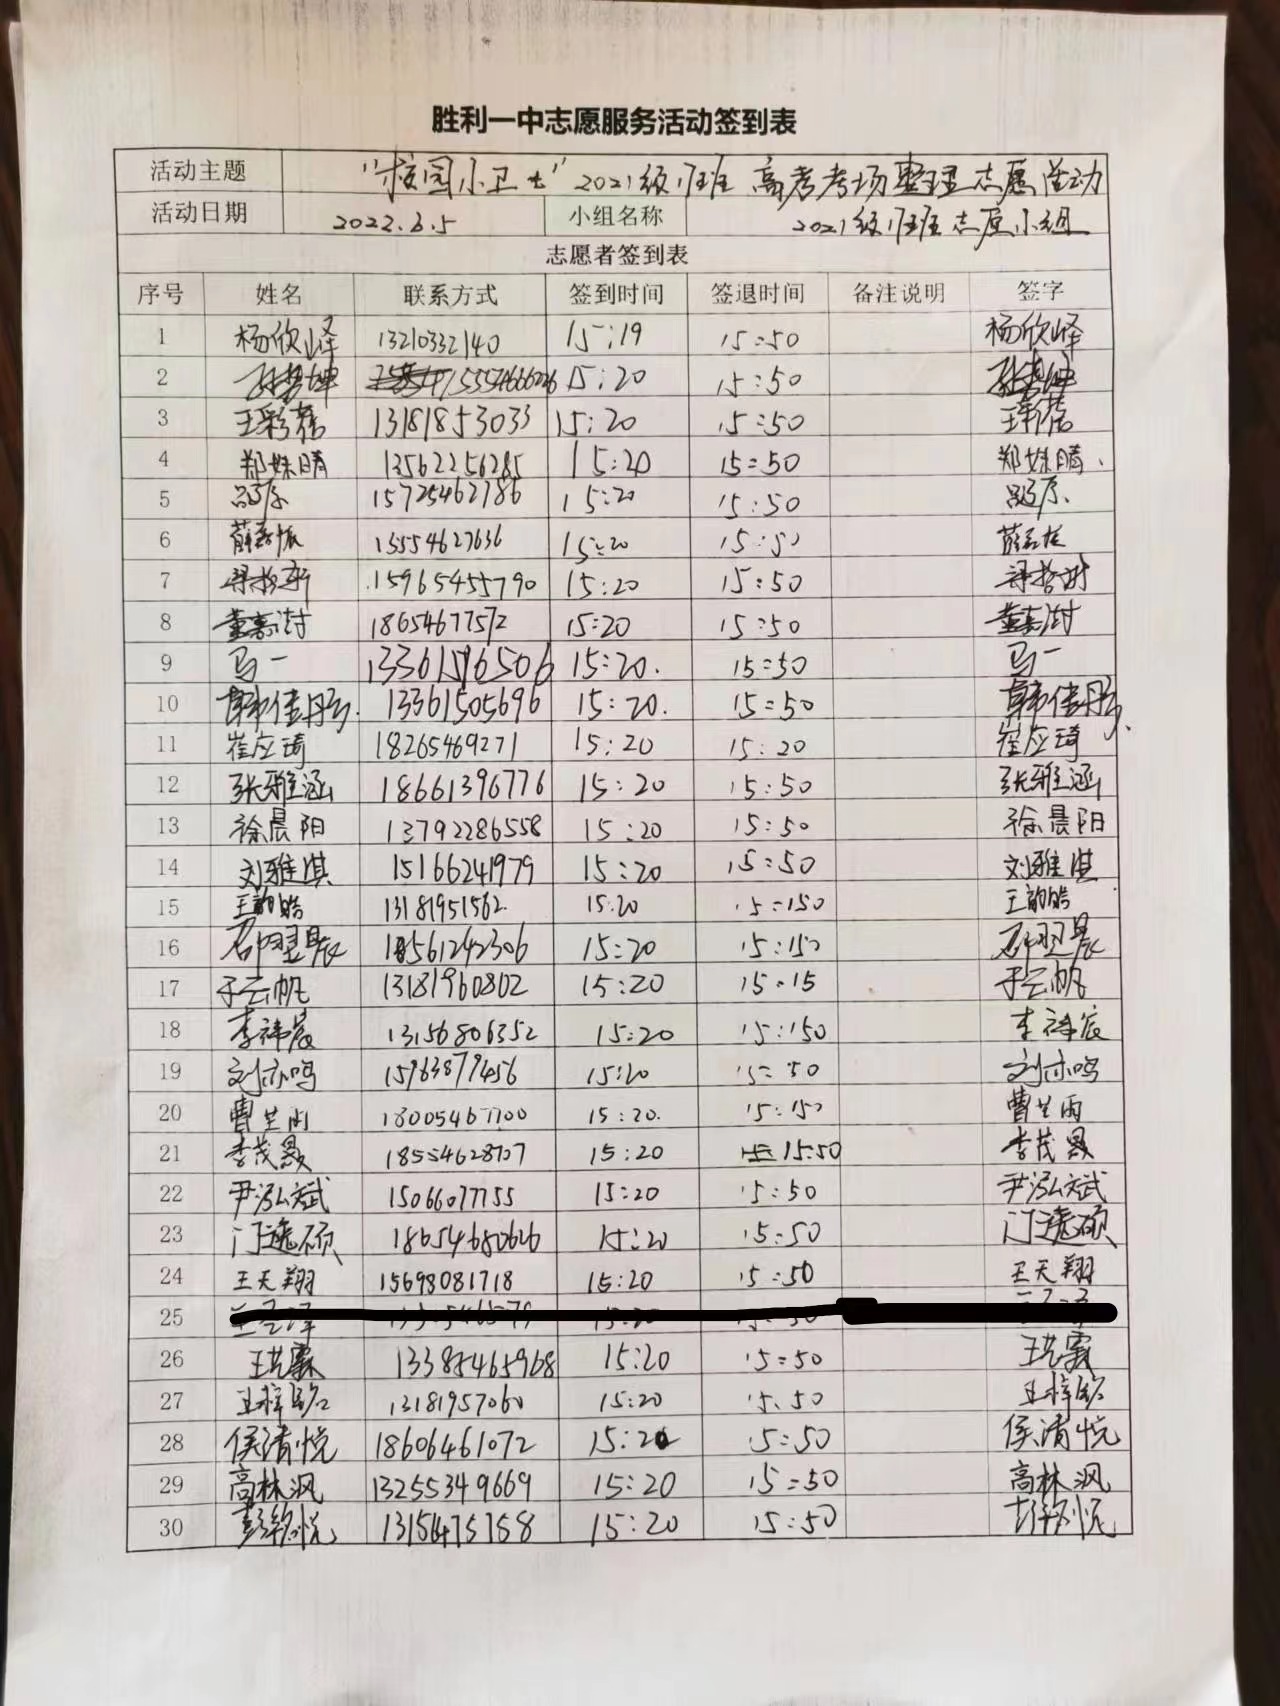 胜利一中志愿服务活动签到表
活动主题 "校园小卫士" 2021级1班班 高考考场整理志愿活动
活动日期 2022.6.5 小组名称 2021级1班班志愿小组
志愿者签到表
序号 姓名 联系方式 签到时间 签退时间 备注说明 签字
1 杨欣峄 13210332140 15:19 15:50 杨欣峄
2 15:20 15:50
3 王彩蓓 13181853033 15:20 15:50 王彩蓓
4 郑姝晴 13562256285 15:20 15:50 郑姝晴.
5 吕原 15725462786 15:20 15:50 吕原.
6 15554627636 15:20 15:50
7 15965455790 15:20 15:50
8 董嘉澍 18654677572 15:20 15:50 董嘉澍
9 马一 13361596506 15:20. 15:50 马一
10 韩佳彤. 13361505696 15:20. 15:50 韩佳彤.
11 崔应琦 18265469271 15:20 15:20 崔应琦
12 张雅涵 18661396776 15:20 15:50 张雅涵
13 徐晨阳 13792286558 15:20 15:50 徐晨阳
14 刘雅淇 15166241979 15:20 15:50 刘雅淇
15 王韵皓 13181951562. 15:20 15:150 王韵皓
16 石翌晨 18561242306 15:20 15:150 石翌晨
17 于云帆 13181960802 15:20 15.15 于云帆
18 李祎宸 13156806352 15:20 15:150 李祎宸
19 刘亦鸣 15963879456 15:20 15:50 刘亦鸣
20 曹芷雨 18005467700 15:20. 15:150 曹芷雨
21 李茂晟 18554628707 15:20 15:50 李茂晟
22 尹泓斌 15066077755 15:20 15:50 尹泓斌
23 门逸硕 18654680626 15:20 15:50 门逸硕
24 王天翔 15698081718 15:20 15:50 王天翔
25
26 王艺霖 13385465968 15:20 15:50 王艺霖
27 王梓铭 13181957060 15:20 15.50 王梓铭
28 侯清悦 18606461072 15:20 15:50 侯清悦
29 高林沨 13255349669 15:20 15:50 高林沨
30 彭铭悦 13156475758 15:20 15:50 彭铭悦